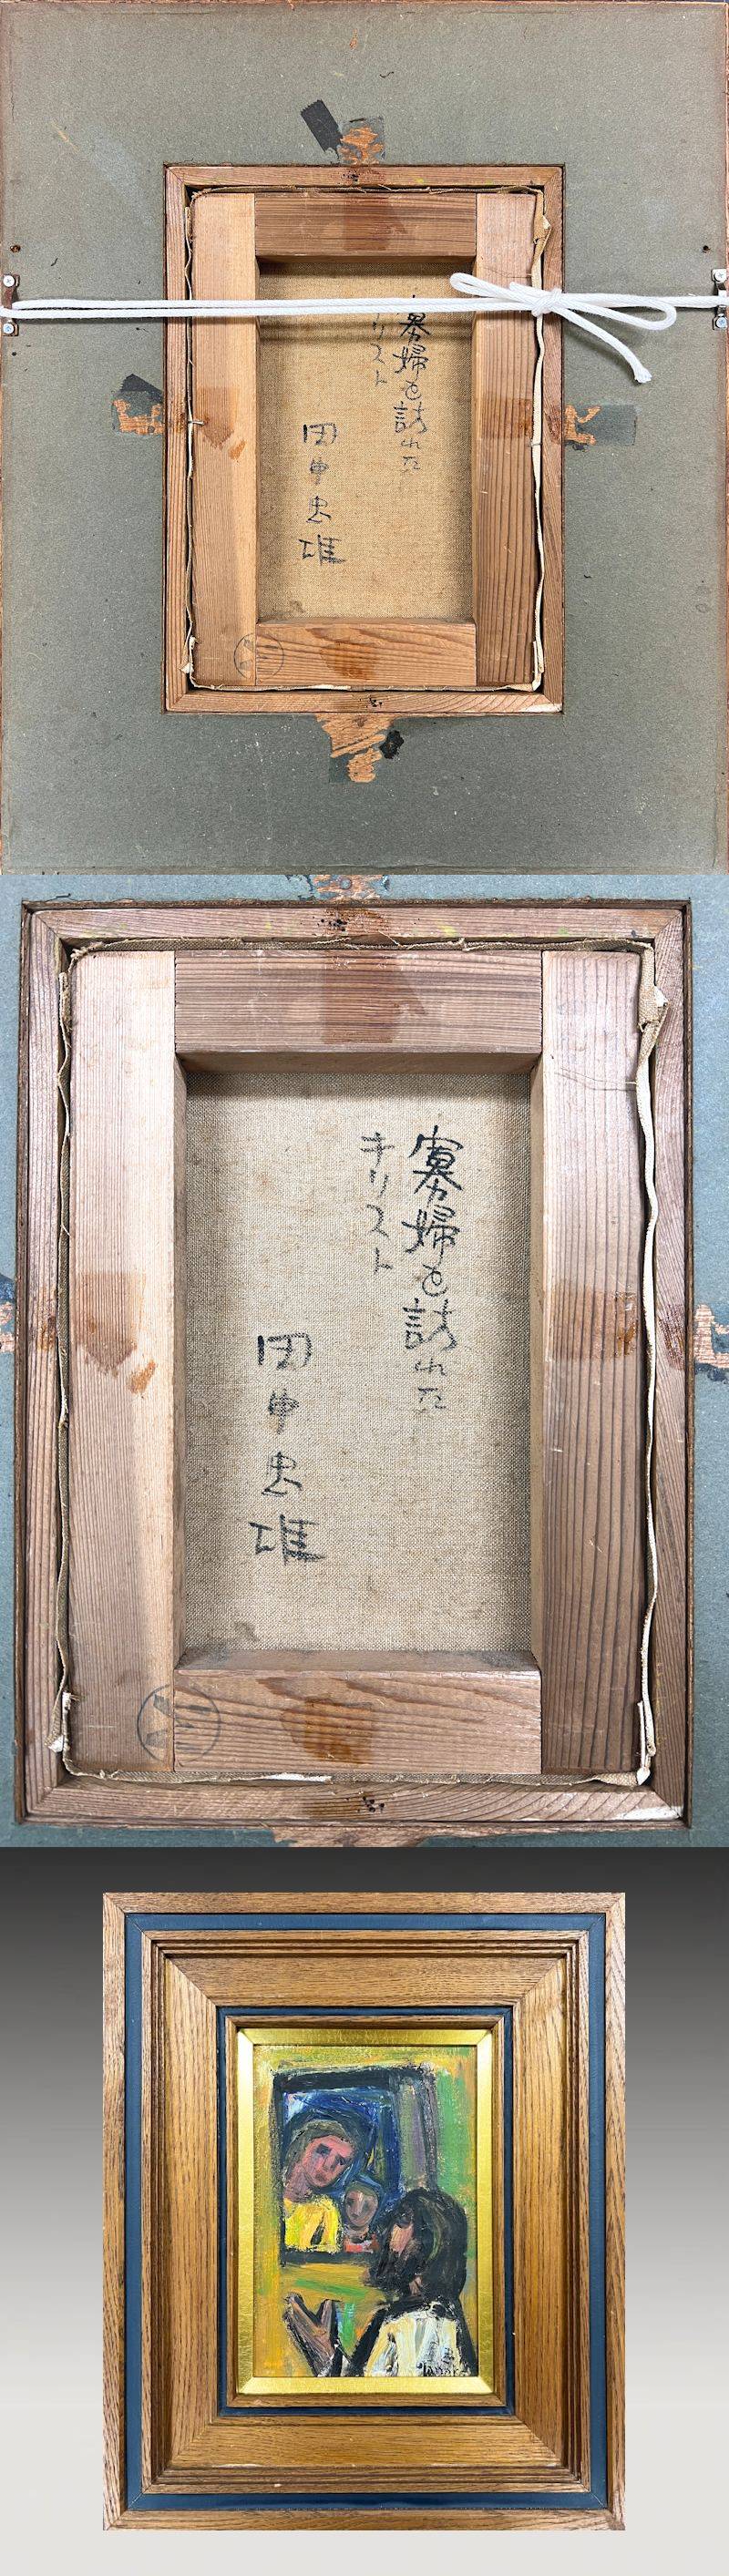 寡婦を訪れた
キリスト
田中忠雄
寡婦を訪れた
キリスト
田中忠雄
Tanaka